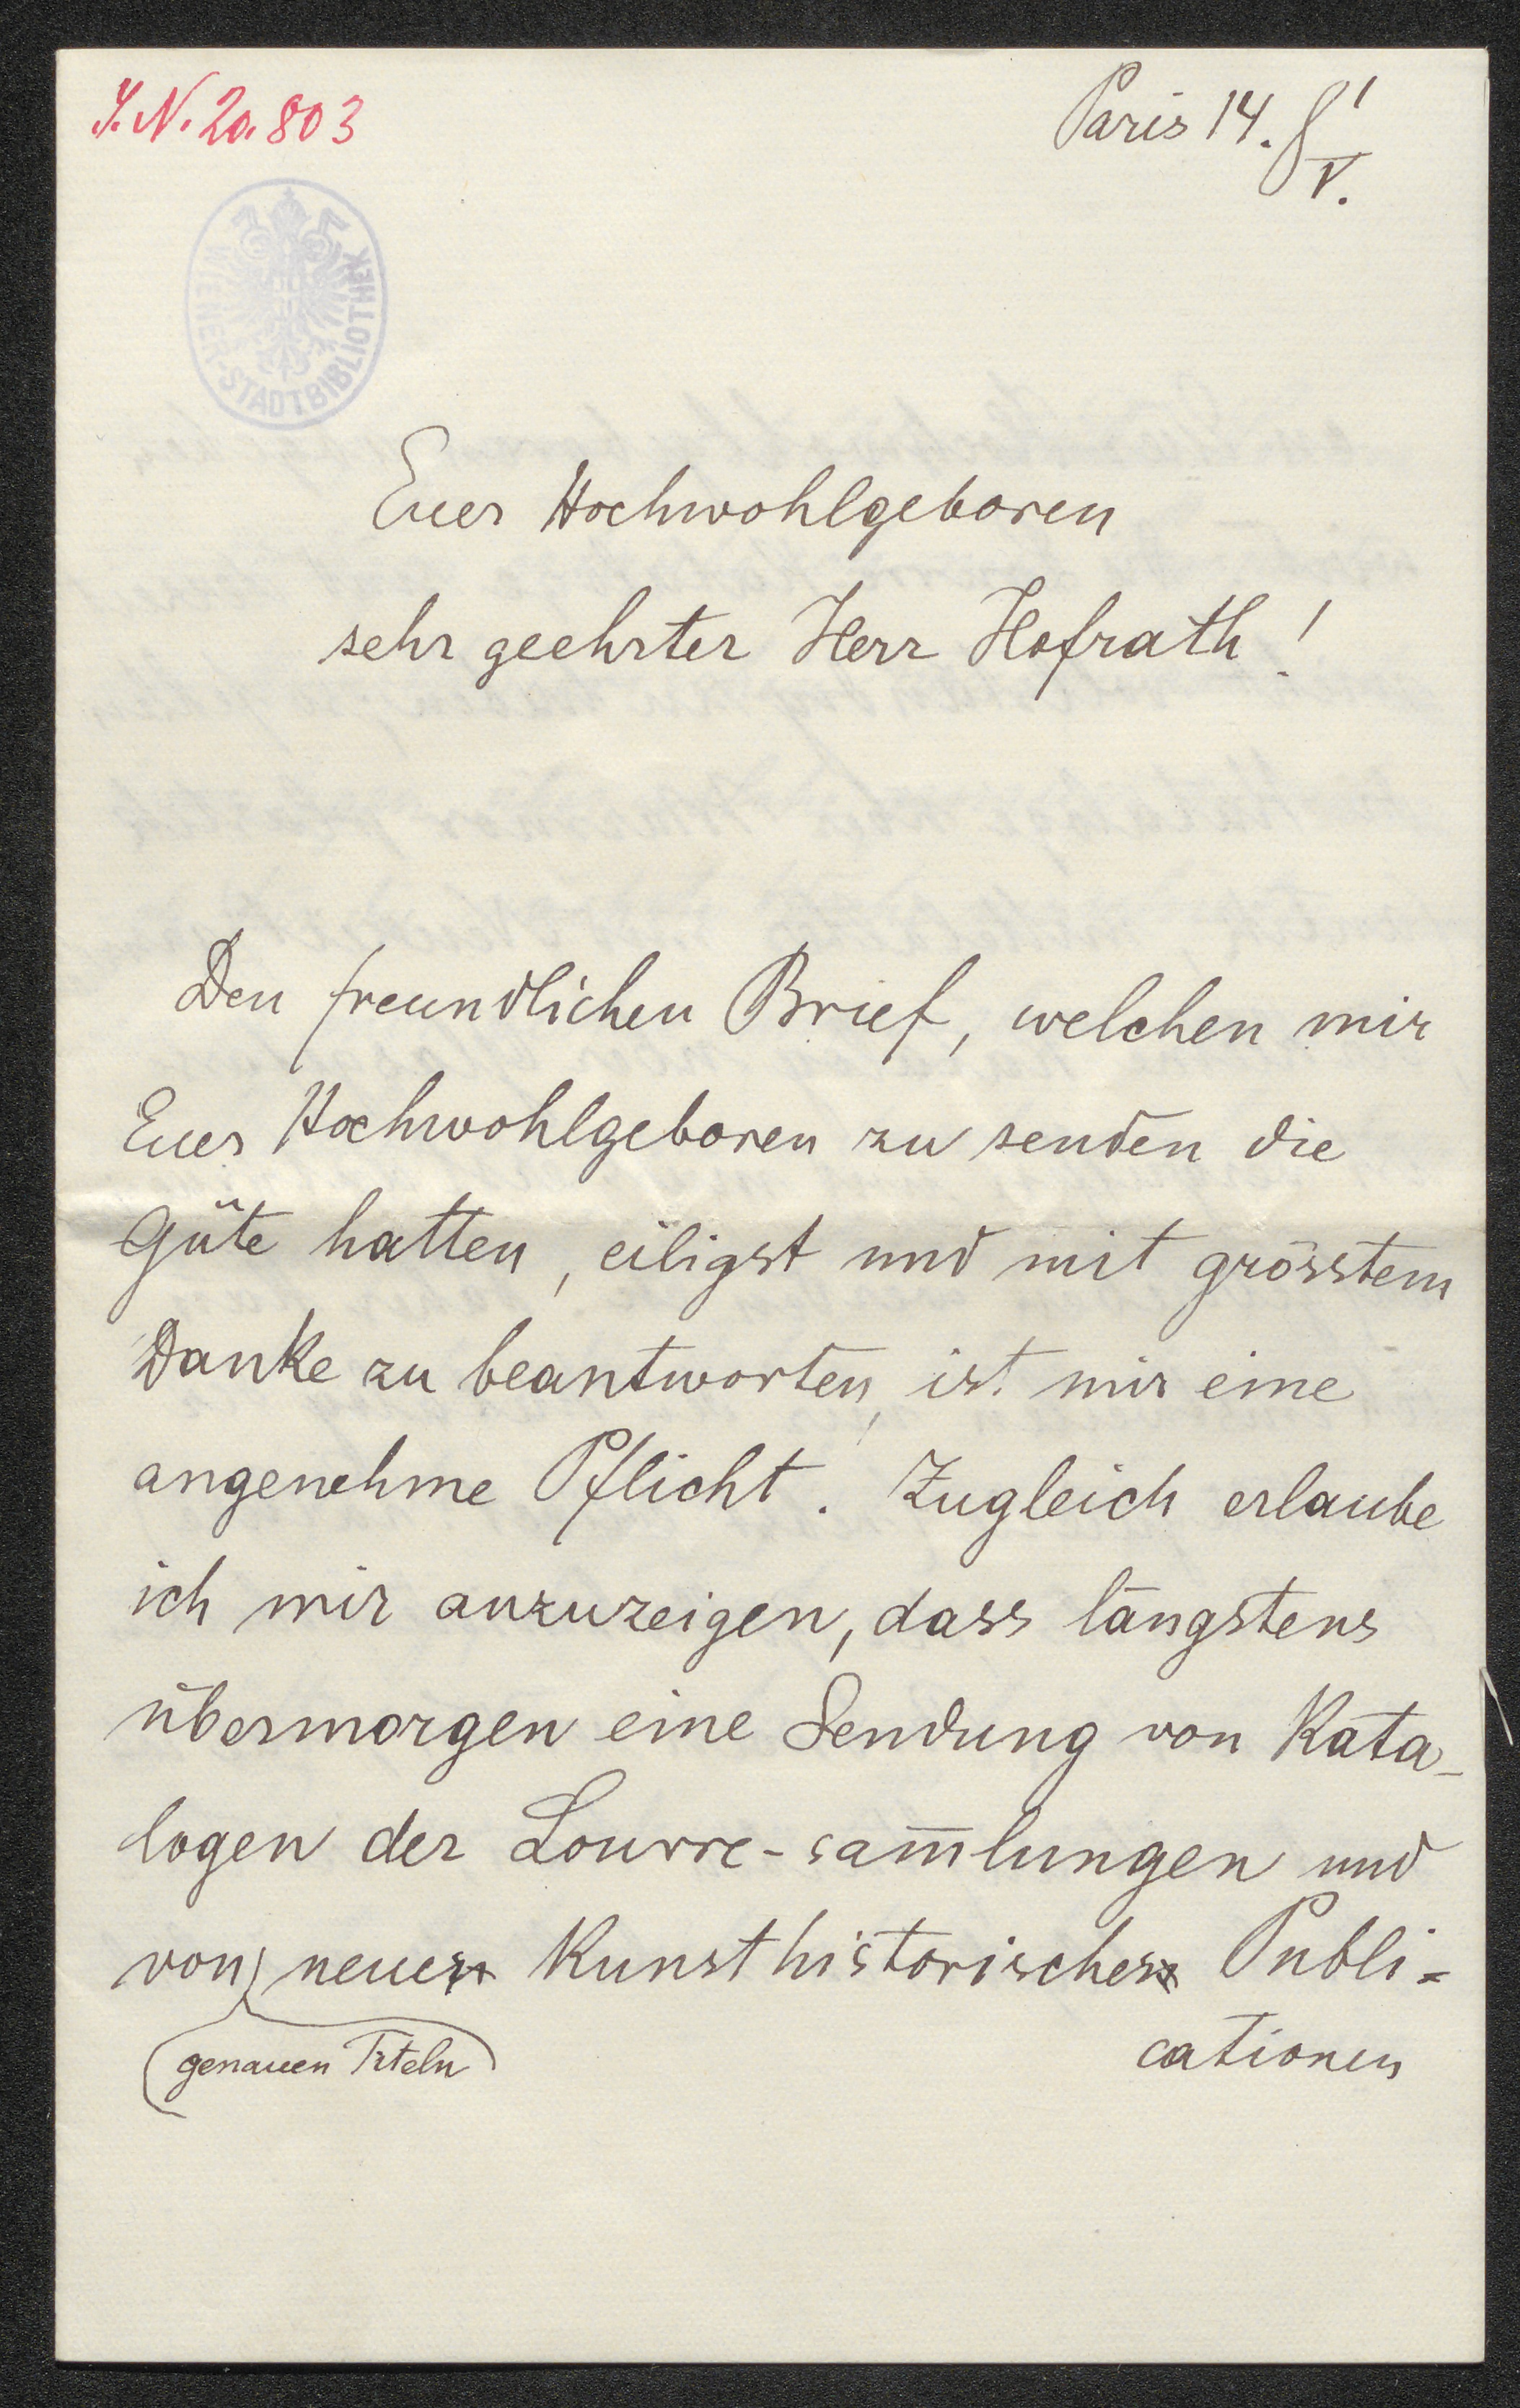 J.N. 20.803
Paris 14. 8'
V.
WIENER-STADTBIBLIOTHEK
Euer Hochwohlgeboren
sehr geehrter Herr Hofrath!
Den freundlichen Brief, welchen mir
Euer Hochwohlgeboren zu senden die
Güte hatten, eiligst und mit grösstem
Danke zu beantworten, ist mir eine
angenehme Pflicht. Zugleich erlaube
ich mir anzuzeigen, dass längstens
übermorgen eine Sendung von Kata-
logen der Louvre-sam̅lungen und
von neuer kunsthistorischer Publi-
genauen Titeln
cationen